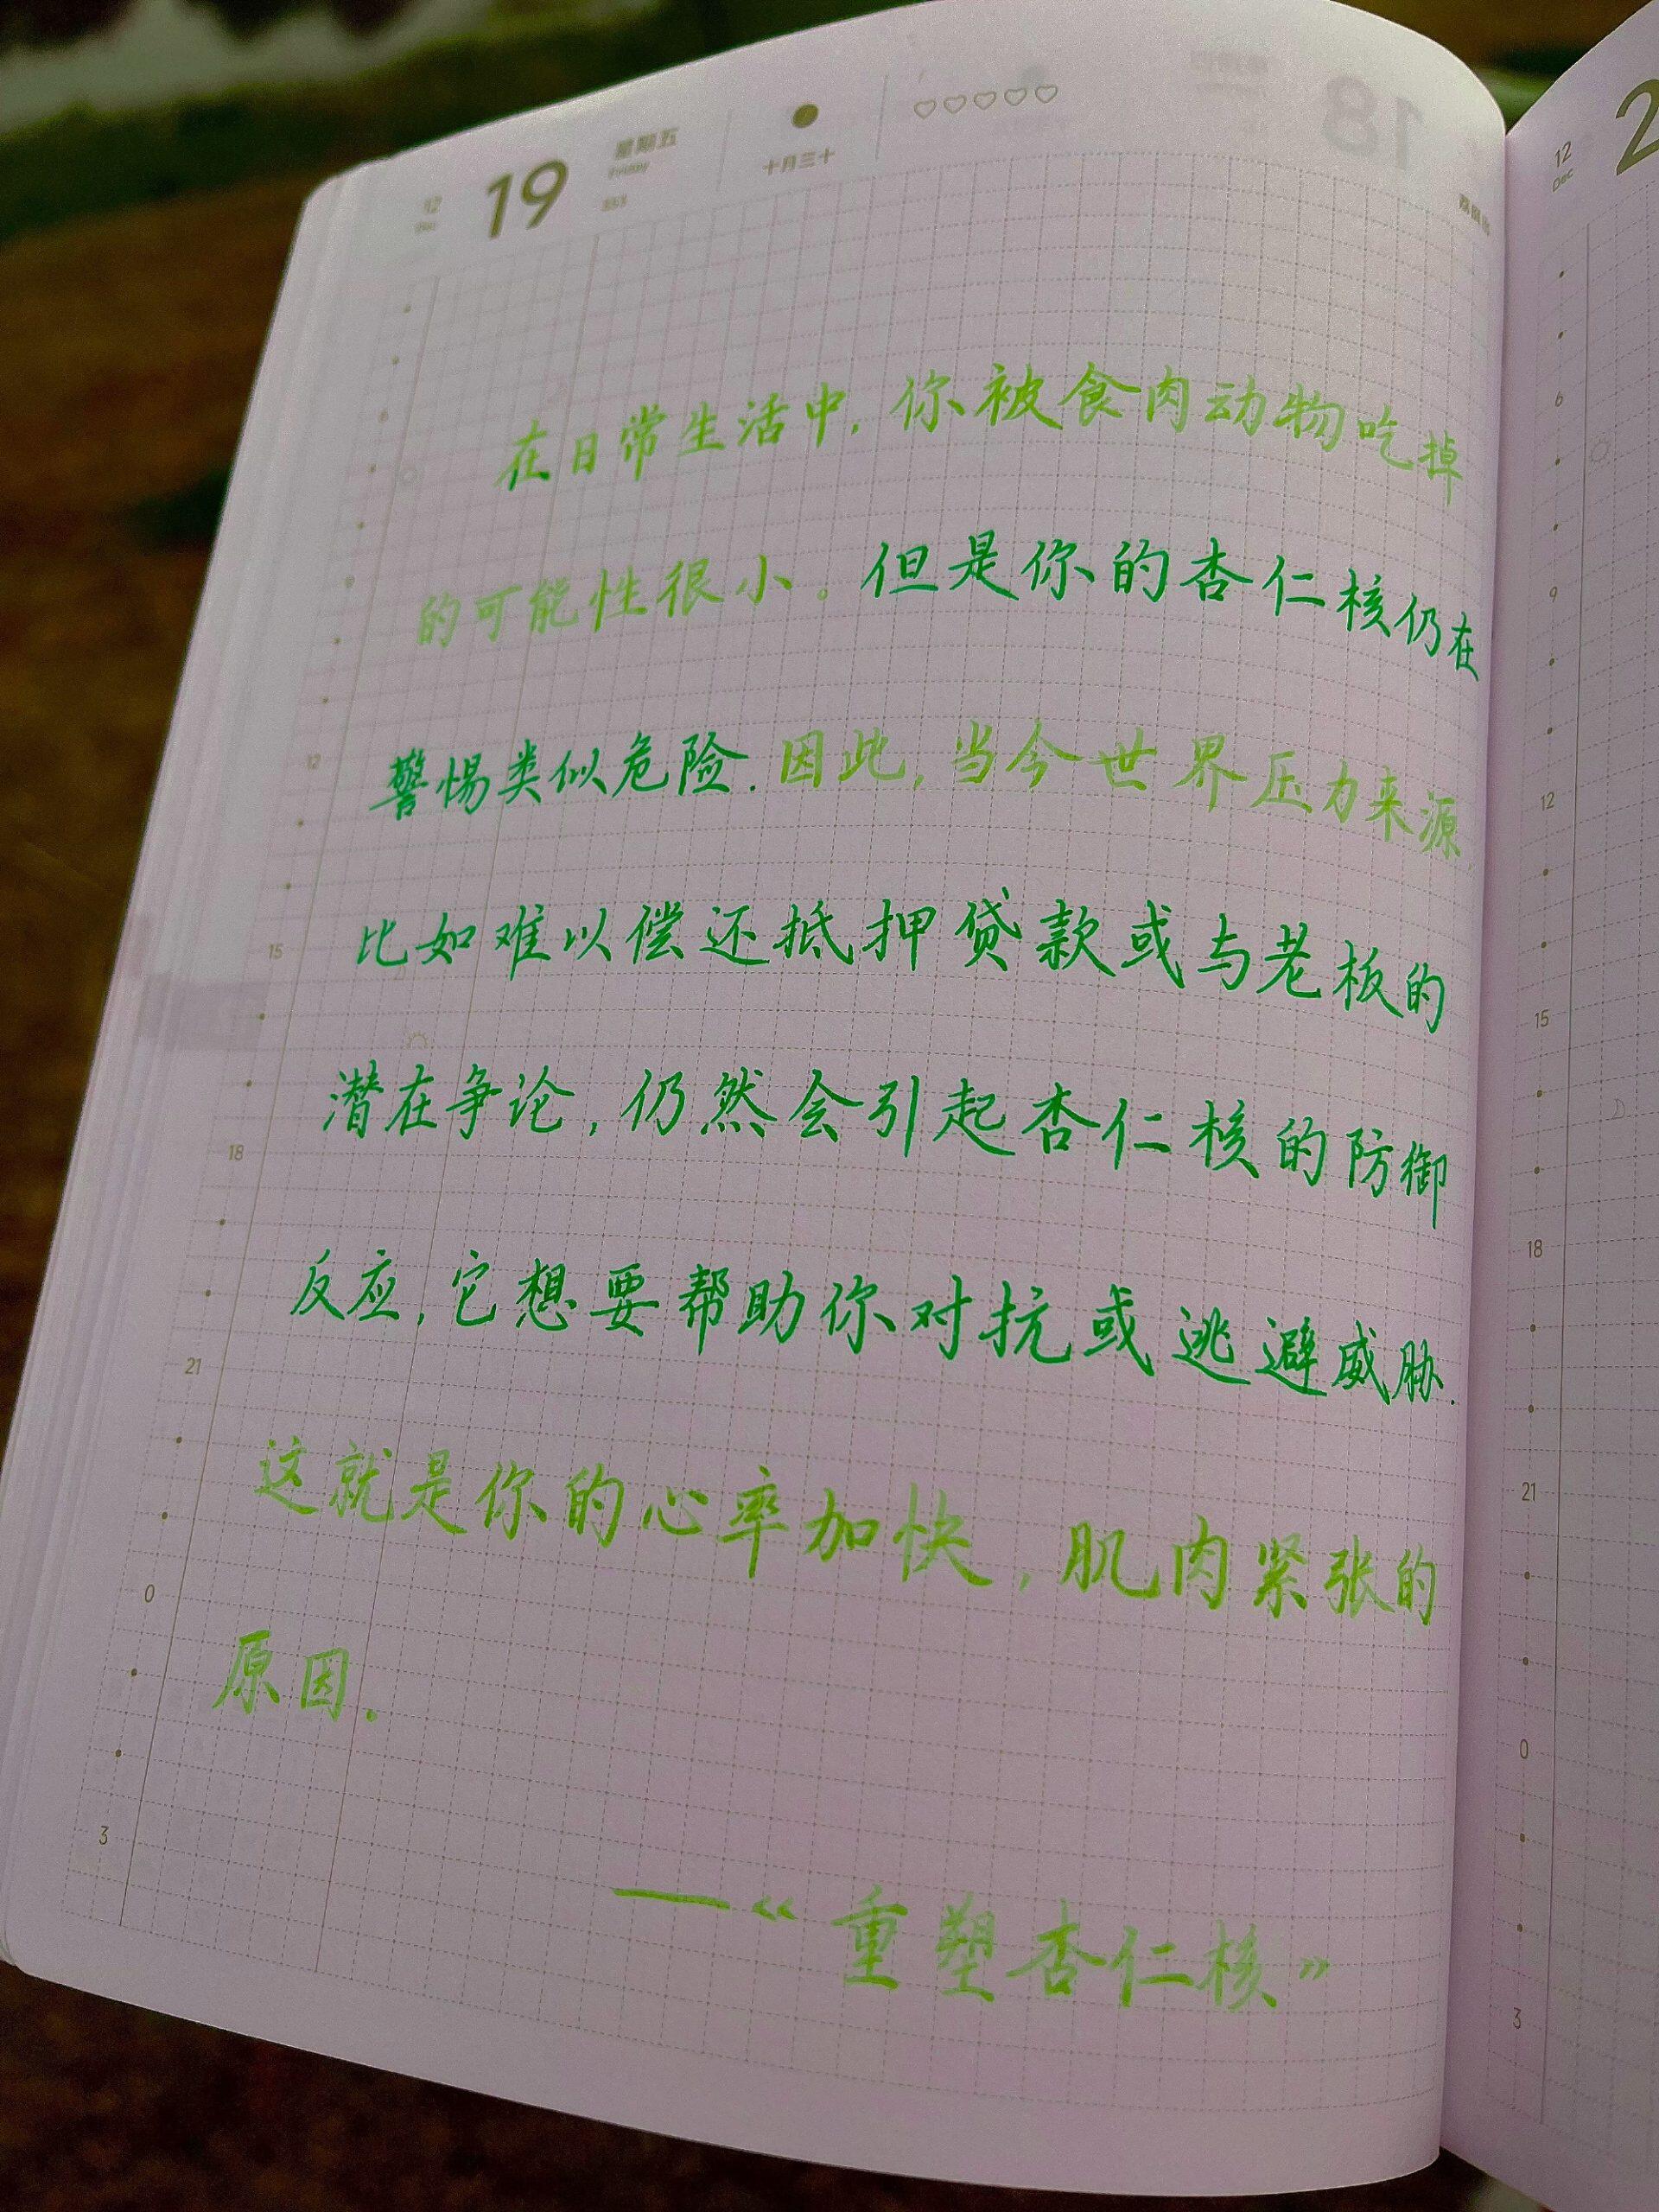 12
Dec
19
星期五
Friday
353
十月三十
18
12
Dec
2
在日常生活中，你被食肉动物吃掉
的可能性很小。但是你的杏仁核仍在
警惕类似危险.因此,当今世界压力来源
比如难以偿还抵押贷款或与老板的
潜在争论,仍然会引起杏仁核的防御
反应,它想要帮助你对抗或逃避威胁.
这就是你的心率加快,肌肉紧张的
原因.
——《重塑杏仁核》
6
9
12
15
18
21
0
3
6
9
12
15
18
21
0
3